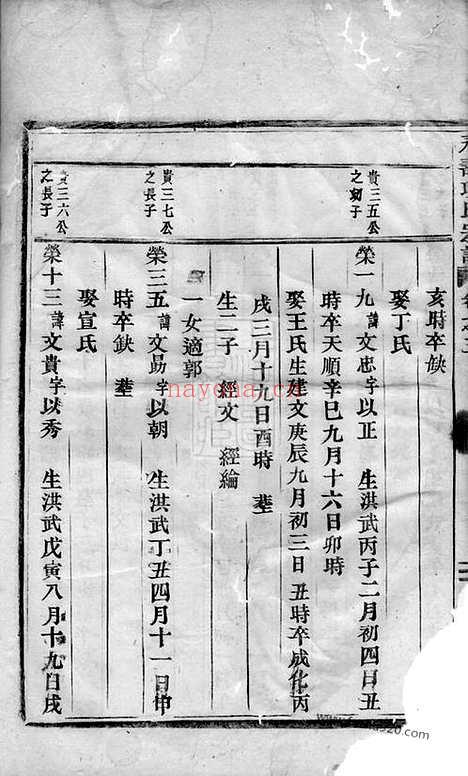 亥時卒缺
娶丁氏
貴三五公
之幼子
榮一九諱文忠字以正　生洪武丙子二月初四日丑
時卒天順辛巳九月十六日卯時
娶王氏生建文庚辰九月初三日丑時卒成化丙
戌三月十九日酉時　塟
生二子　經文　經綸
一女適郭
貴三七公
之長子
榮三五諱文勗字以朝　生洪武丁丑四月十一日申
時卒缺　塟
娶宣氏
貴三六公
之長子
榮十三諱文貴字以秀　生洪武戊寅八月十九日戌
nayona.cn